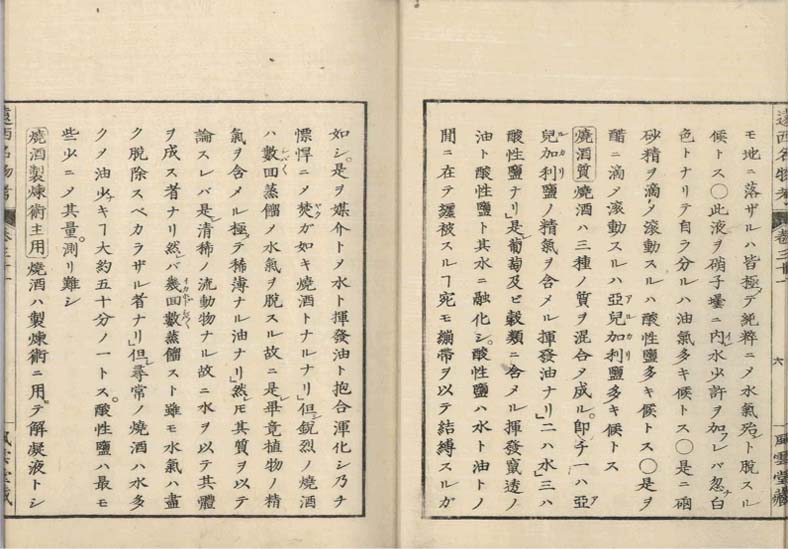 モ地ニ落ザルハ皆極テ純粹ニメ水氣殆ト脫スル
候トス〇此液ヲ硝子壜ニ内水少許ヲ加レバ忽白
色トナリテ自ラ分ルハ油氣多キ候トス〇是ニ硇
砂精ヲ滴メ滾動スルハ酸性鹽多キ候トス〇是ヲ
醋ニ滴メ滾動スルハ亞兒加利鹽多キ候トス
燒酒質 燒酒ハ三種ノ質ヲ混合メ成ル。卽チ一ハ亞
兒加利鹽ノ精氣ヲ含メル揮發油ナリ」二ハ水」三ハ
酸性鹽ナリ」是レ葡萄及ヒ穀類ニ含メル揮發竄透ノ
油ト酸性鹽ト其水ニ融化シ。酸性鹽ハ水ト油トノ
間ニ在テ纒被スルヿ宛モ繃帶ヲ以テ結縛スルガ
遠西名物考
卷三十
六
風雲堂藏
如シ。是ヲ媒介トメ水ト揮發油ト抱合渾化シ乃チ
慓悍ニメ焚ガ如キ燒酒トナルナリ」但シ銳烈ノ燒酒
ハ數回蒸餾メ水氣ヲ脫スル故ニ是レ畢竟植物ノ精
氣ヲ含メル極テ稀薄ナル油ナリ」然レモ其質ヲ以テ
論スレバ是レ清稀ノ流動物ナル故ニ水ヲ以テ其體
ヲ成ス者ナリ然レバ幾回數蒸餾スト雖モ水氣ハ盡
ク脫除スベカラザル者ナリ」但シ尋常ノ燒酒ハ水多
クメ油少キヿ大約五十分ノ一トス。酸性鹽ハ最モ
些少ニメ其量。測リ難シ
燒酒製煉術主用 燒酒ハ製煉術ニ用テ解凝液トシ
遠西名物考
風雲堂藏